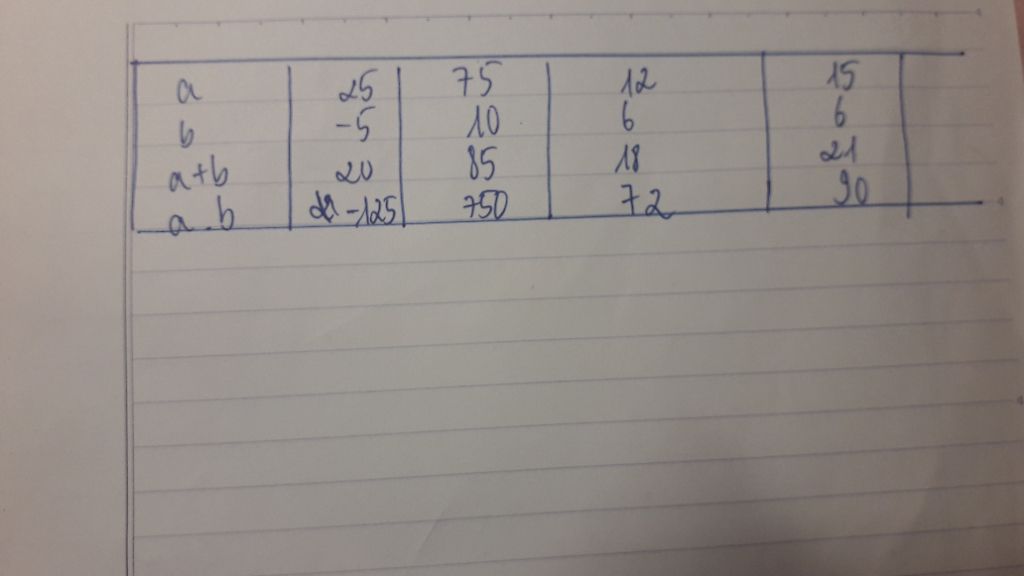 a 25 75 12 15
b -5 10 6 6
a+b 20 85 18 21
a.b -125 750 72 90